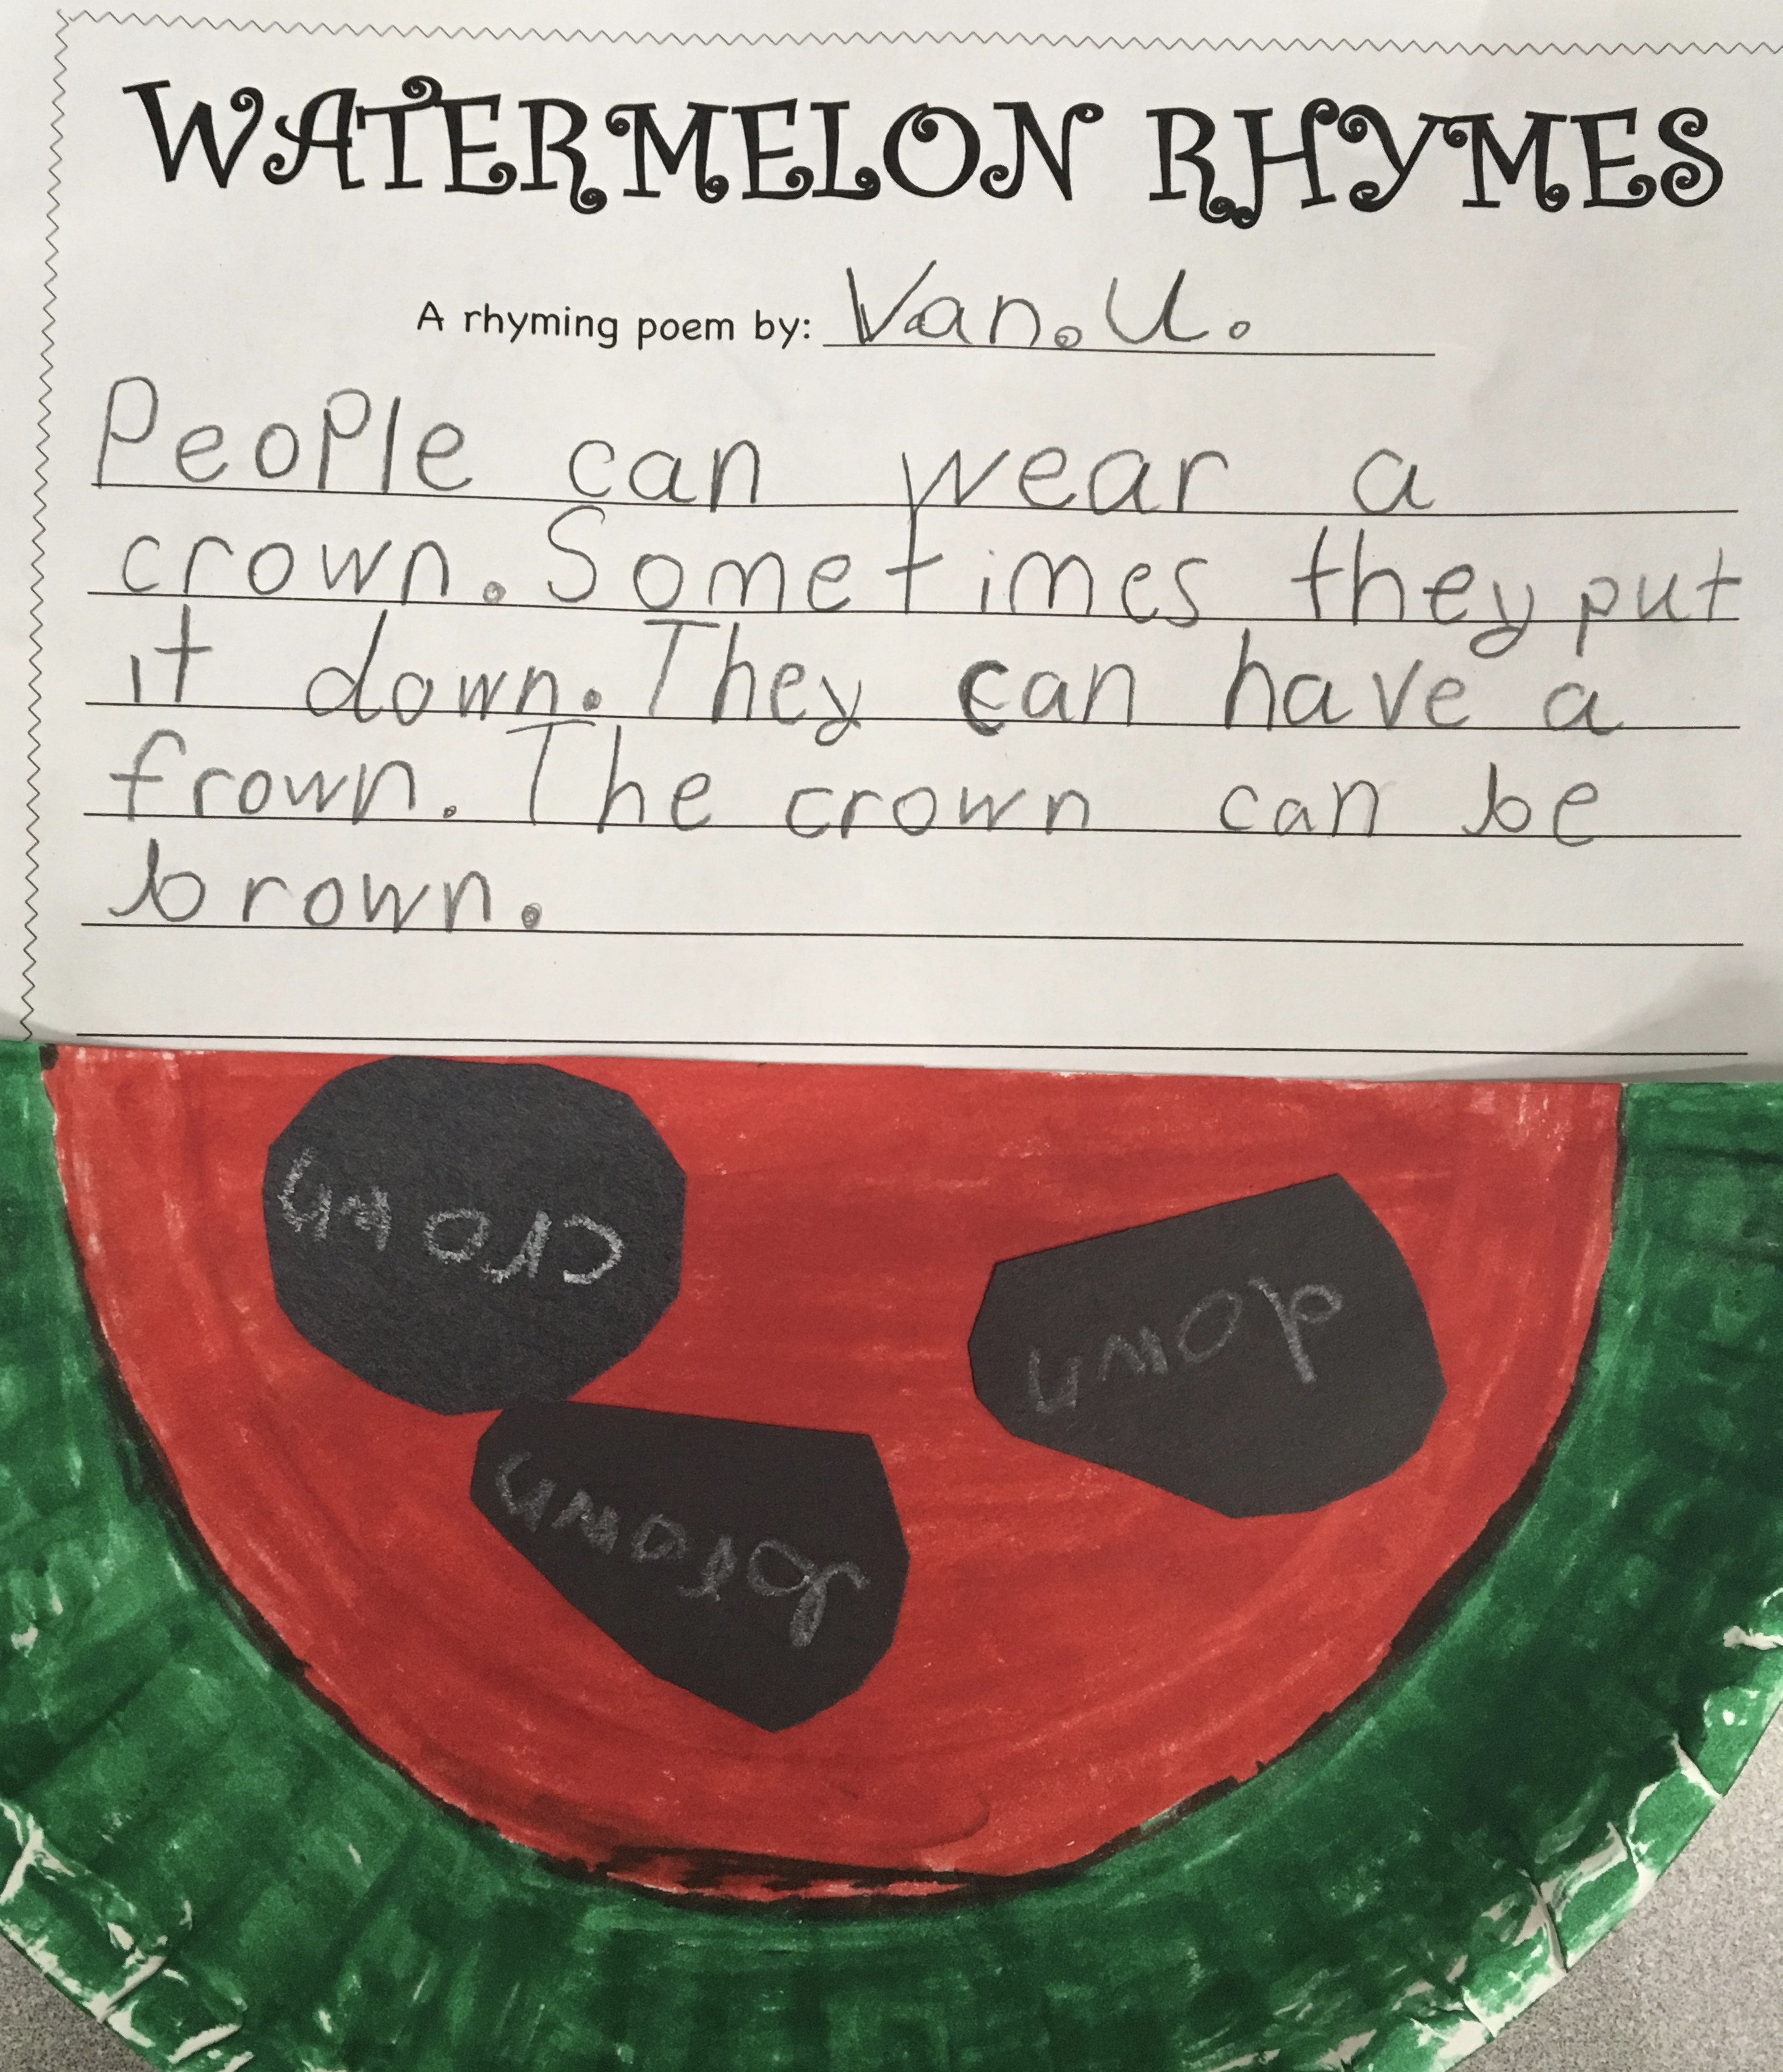 WATERMELON RHYMES
A rhyming poem by: Van. U.
People can wear a
crown. Sometimes they put
it down. They can have a
frown. The crown can be
brown.
crown
down
brown